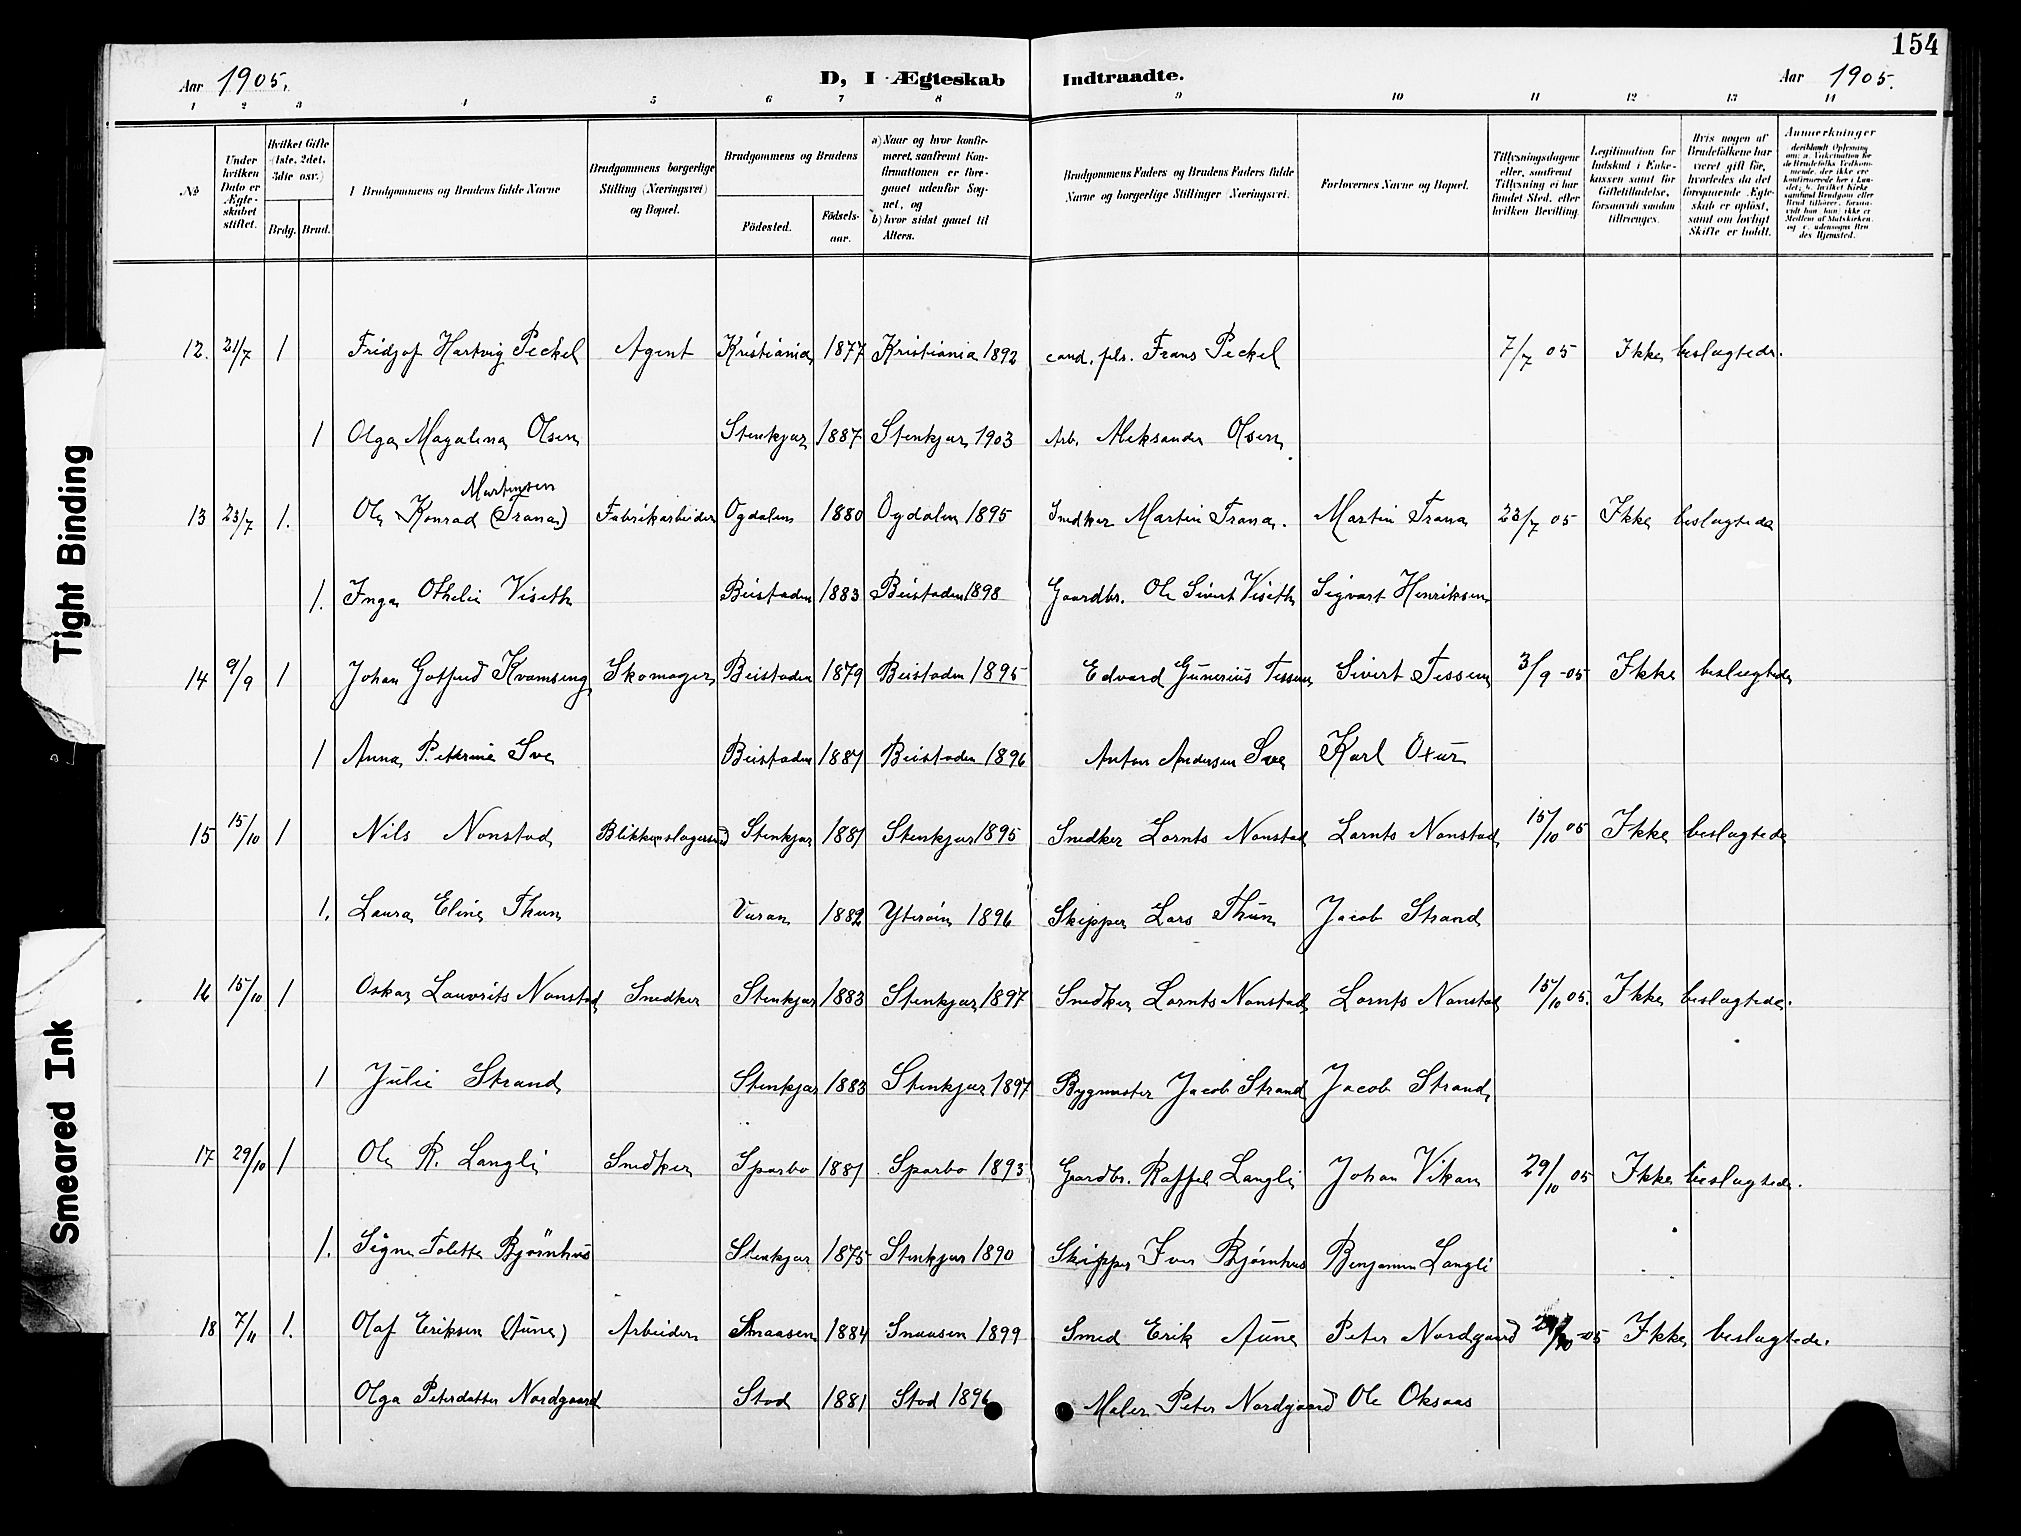 154
Aar 1905. D, I Ægteskab Indtraadte. Aar 1905.
1 2 3 4 5 6 7 8 9 10 11 12 13 14
No
Under hvilken Dato er Ægteskabet stiftet.
Hvilket Gifte (1ste, 2det, 3die osv.)
Brdg. Brud.
Brudgommens og Brudens fulde Navne
Brudgommens borgerlige Stilling (Næringsvei) og Bopæl.
Brudgommens og Brudens
Födested. Födselsaar.
a) Naar og hvor konfirmeret, saafremt Konfirmationen er foregaaet udenfor Sognet, og b) hvor sidst gaaet til Alters.
Brudgommens Faders og Brudens Faders fulde Navne og borgerlige Stillinger (Næringsvei).
Forlovernes Navne og Bopæl.
Tillysningsdagene eller, saafremt Tillysning ei har fundet Sted, efter hvilken Bevilling.
Legitimation for Indskud i Enkekassen samt for Giftetilladelse, forsaavidt saadan tiltrænges.
Hvis nogen af Brudefolkene har været gift för, hvorledes da det foregaaende Ægteskab er oplöst, samt om lovligt Skifte er holdt.
Anmerkninger
12. 21/7 1 Fridjof Hartvig Peckel Agent Kristiania 1877 Kristiania 1892 cand. fils. Frans Peckel 7/7 05 Ikke beslægtede.
1 Olga Magalena Olsen Stenkjær 1887 Stenkjær 1903 Arb. Aleksander Olsen
Martinsen
13 23/7 1. Ole Konrad (Trana) Fabrikarbeider Ogdalen 1880 Ogdalen 1895 Snedker Martin Trana. Martin Trana 23/7 05 Ikke beslægtede
1. Inga Othelie Viseth Beistaden 1883 Beistaden 1898 Gaardbr. Ole Sivert Viseth Sigvart Henriksen
14 9/9 1 Johan Gotfred Kvamseng Skomager Beistaden 1879 Beistaden 1895 Edvard Gunerius Tessem Sivert Tessem 3/9-05 Ikke beslægtede
1 Anna Peterine Sve Beistaden 1881 Beistaden 1896 Anton Andersen Sve Karl Oxur
15 15/10 1 Nils Nonstad Blikkenslagersvend Stenkjær 1881 Stenkjær 1895 Snedker Lornts Nonstad Lornts Nonstad 15/10 05 Ikke beslægtede
1. Laura Eline Thun Vuran 1882 Yterøen 1896 Skipper Lars Thun Jacob Strand
16 15/10 1 Oskar Lauvrits Nonstad Snedker Stenkjær 1883 Stenkjær 1897 Snedker Lornts Nonstad Lornts Nonstad 15/10 05. Ikke beslægtede.
1 Julie Strand Stenkjær 1883 Stenkjær 1897 Bygmester Jacob Strand Jacob Strand
17 29/10 1 Ole R. Langli Snedker Sparbo 1881 Sparbo 1895 Gaardbr. Raffel Langli Johan Vikan 29/10 05 Ikke beslægtede.
1. Signe Tolette Bjørnhus Stenkjær 1875 Stenkjær 1890 Skipper Iver Bjørnhus Benjamin Langli
18 7/11 1. Olaf Eriksen (Aune) Arbeider Snaasen 1884 Snaasen 1899 Smed Erik Aune Peter Nordgaard 29/10-05 Ikke beslægtede.
Olga Petersdatter Nordgaard Stod 1881 Stod 1896 Maler Peter Nordgaard Ole Oksaas
Tight Binding
Smeared Ink